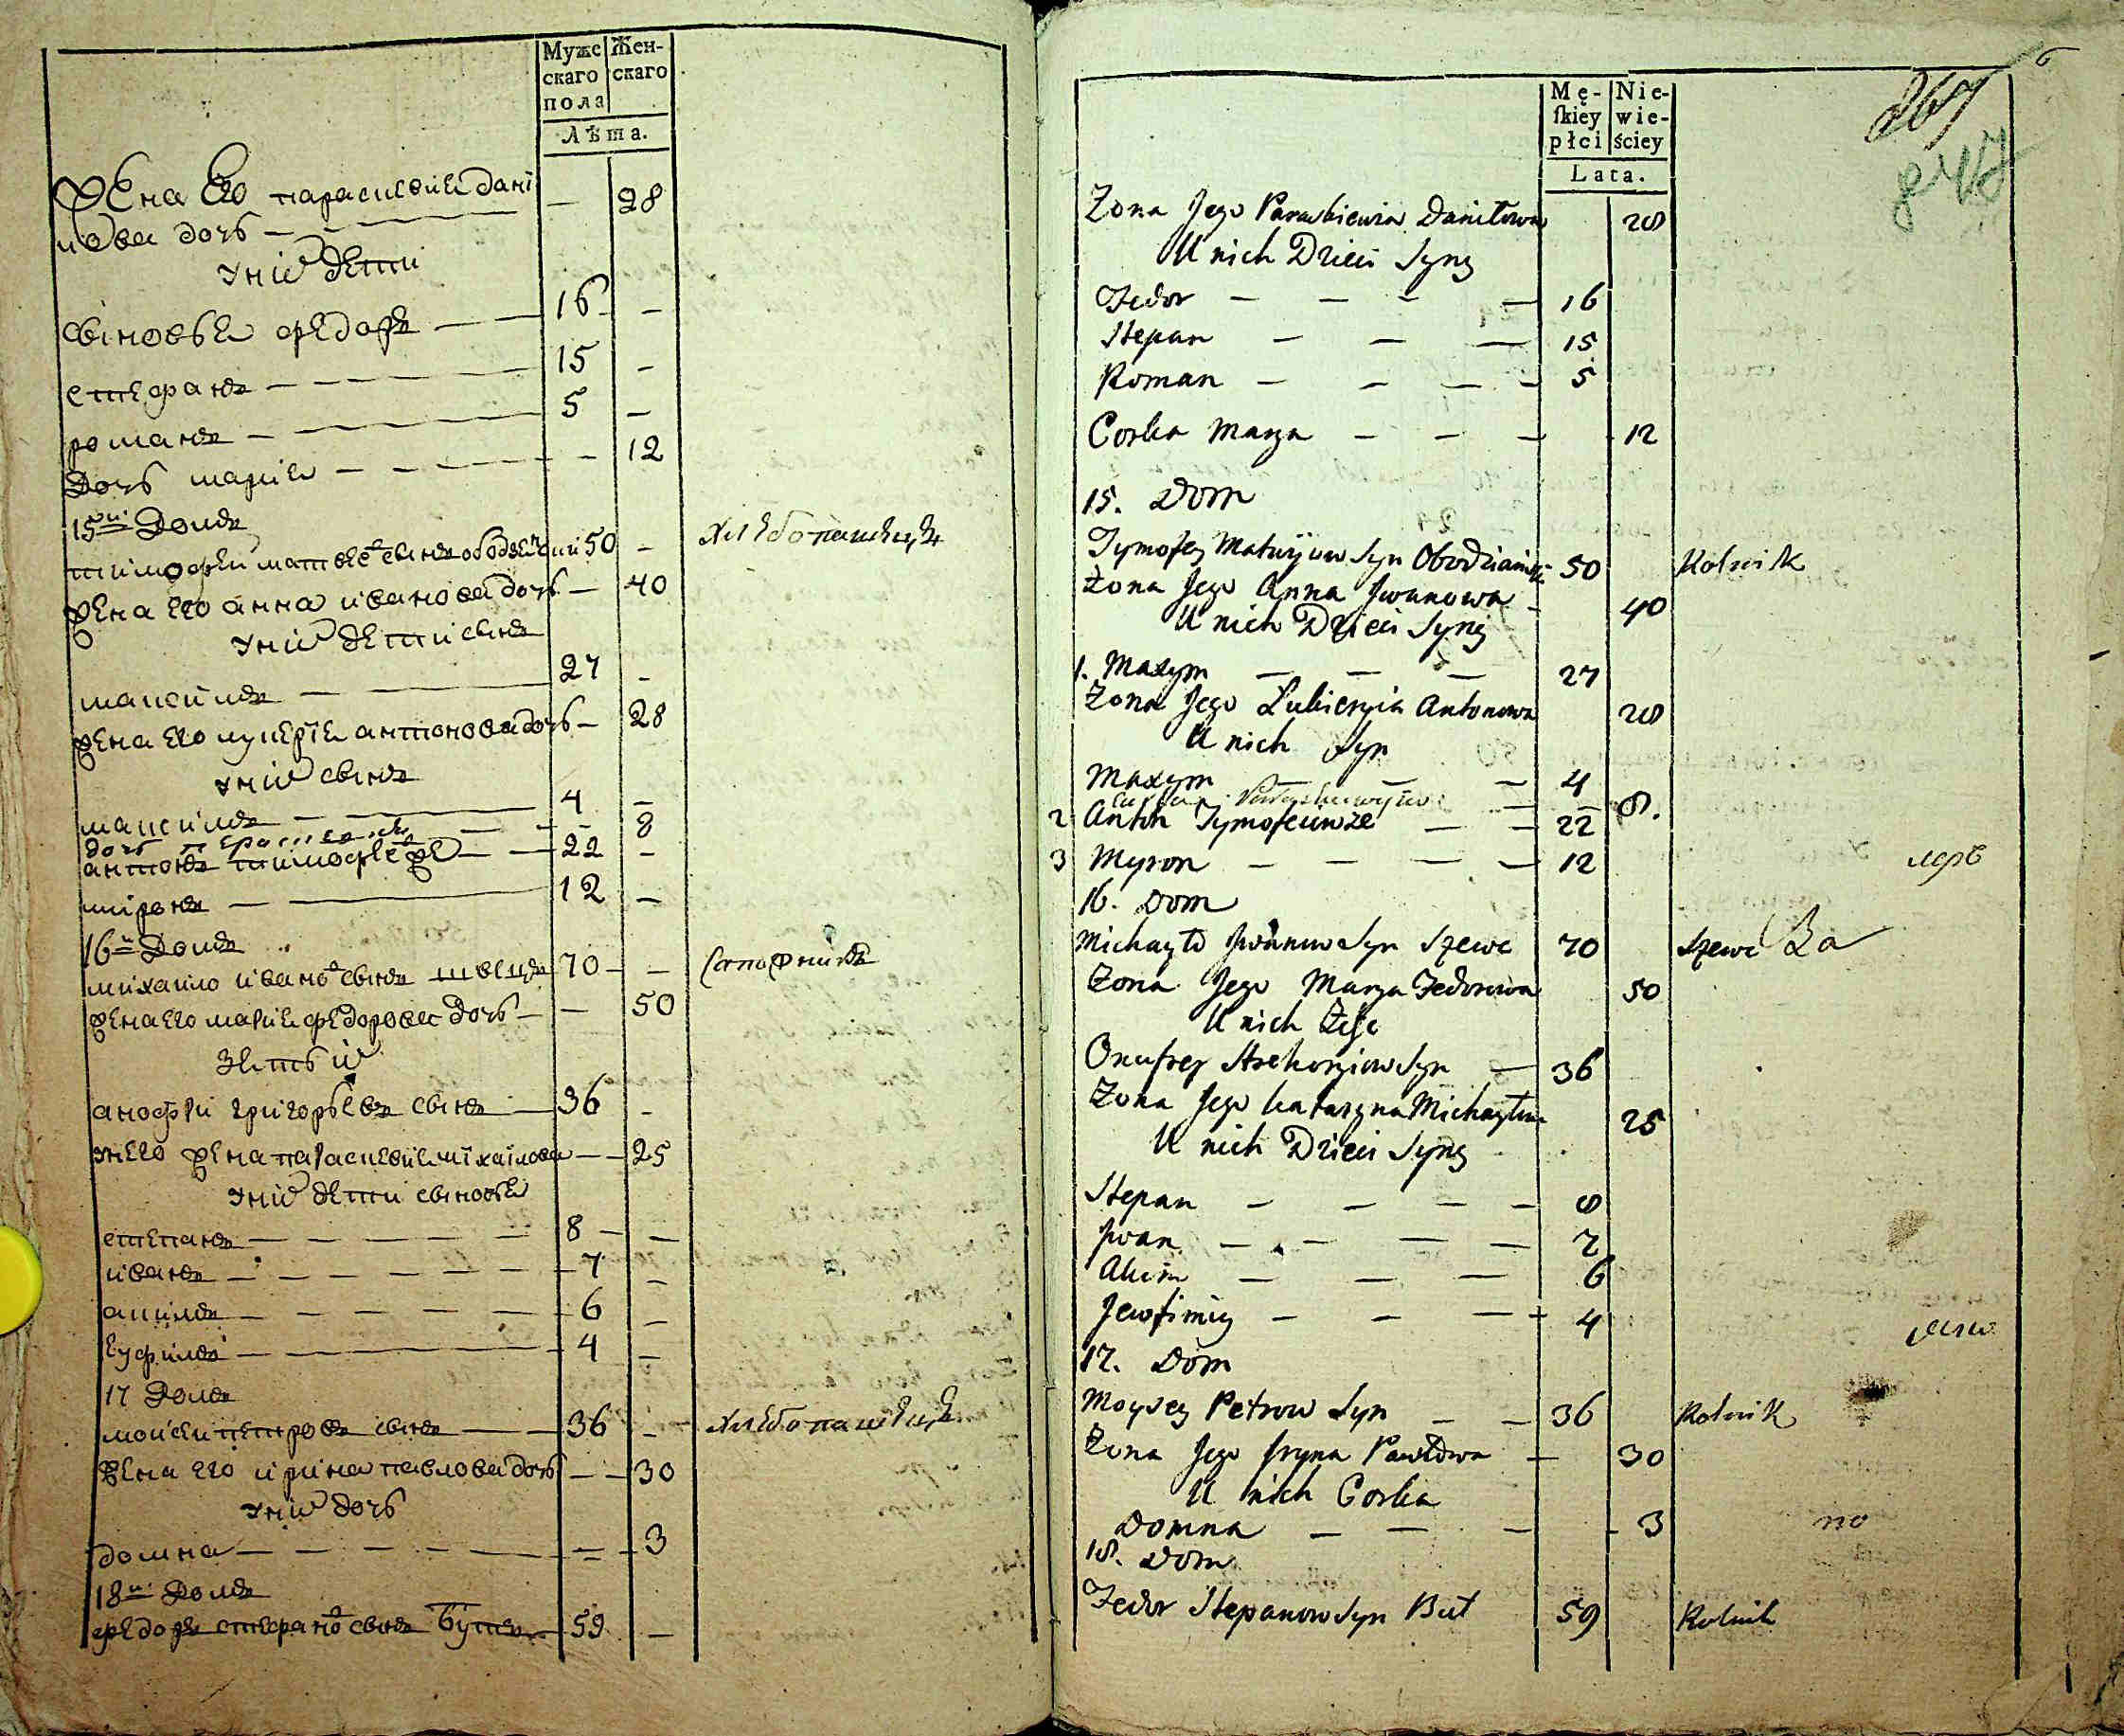 Муже
скаго
пола
Жен-
скаго
Лѣта.
жена его параскевия дани
лова дочь — 28
у них дети
синовья федоръ — 16 —
стефанъ — 15 —
романъ — 5 —
дочь мария — — 12
15й Домъ
тимофей матвеев синъ ободзенский 50 — хлебопашецъ
жена его анна иванова дочь — 40
у них дети синъ
максимъ — 27 —
жена его лукерїя антонова дочь — 28
у них синъ
максимъ — 4 —
дочь — — 8
антонъ тимофеев же — 22 —
миронъ — 12 —
16й Домъ
михайло иванов синъ швецъ 70 — сапожникъ
жена его мария федорова дочь — 50
зять их
анофрий григорьевъ синъ — 36 —
у него жена параскевия михаилова — 25
у них дети синовья
степанъ — 8 —
иванъ — 7 —
акимъ — 6 —
еуфимъ — 4 —
17 Домъ
мойсей петровъ синъ — 36 — хлебопашецъ
жена его ирина павлова дочь — 30
у них дочь
домна — 3
18й Домъ
федоръ стефанов синъ Бутъ 59 —
6
267
847
Mę-
ſkiey
płci
Nie-
wie-
ściey
Lata.
Żona Jego Paraskiewia Daniłowa 28
U nich Dzieci Syny
Fedor — — — — 16
Stepan — — — 15
Roman — — — — 5
Corka Marya — — — 12
15. Dom
Tymofey Matwijow Syn Obodzianski 50 Rolnik
Żona Jego Anna Jwanowa — 40
U nich Dzieci Syny
1. Maxym — — — 27
Żona Jego Łukieryia Antonowa 28
U nich Syn
Maxym — — — 4
— — 8.
2 Anton Tymofeiow że — — 22
3 Myron — — — — 12
16. Dom
Michayło Jwanow Syn Szewc 70 Szewc
Żona Jego Marya Fedorowa 50
U nich Zięć
Onufrey Hrehoryiow Syn — 36
Żona Jego Katarzyna Michayłowa 25
U nich Dzieci Syny
Stepan — — — — 8
Jwan — — — — 7
Akim — — — 6
Jewfimiy — — — 4
17. Dom
Moysey Petrow Syn — — 36 Rolnik
Żona Jego Jryna Pawłowa — 30
U nich Corka
Domna — — — 3
18. Dom
Fedor Stepanow Syn But 59 Rolnik